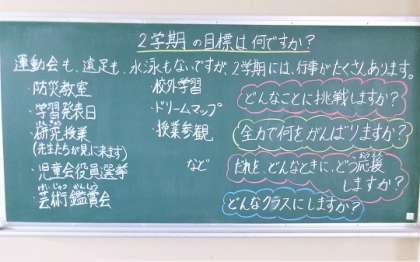 2学期の目標は何ですか?
運動会も、遠足も、水泳もないですが、2学期には、行事がたくさんあります。
・防災教室
・学習発表日
けんきゅう
・研究授業
(先生たちが見に来ます)
・児童会役員選挙
げいじゅつ かんしょう
・芸術鑑賞会
・校外学習
・ドリームマップ
・授業参観
など
どんなことに挑戦しますか?
全力で何をがんばりますか?
おうえん
だれを、どんなときに、どう応援
しますか?
どんなクラスにしますか?